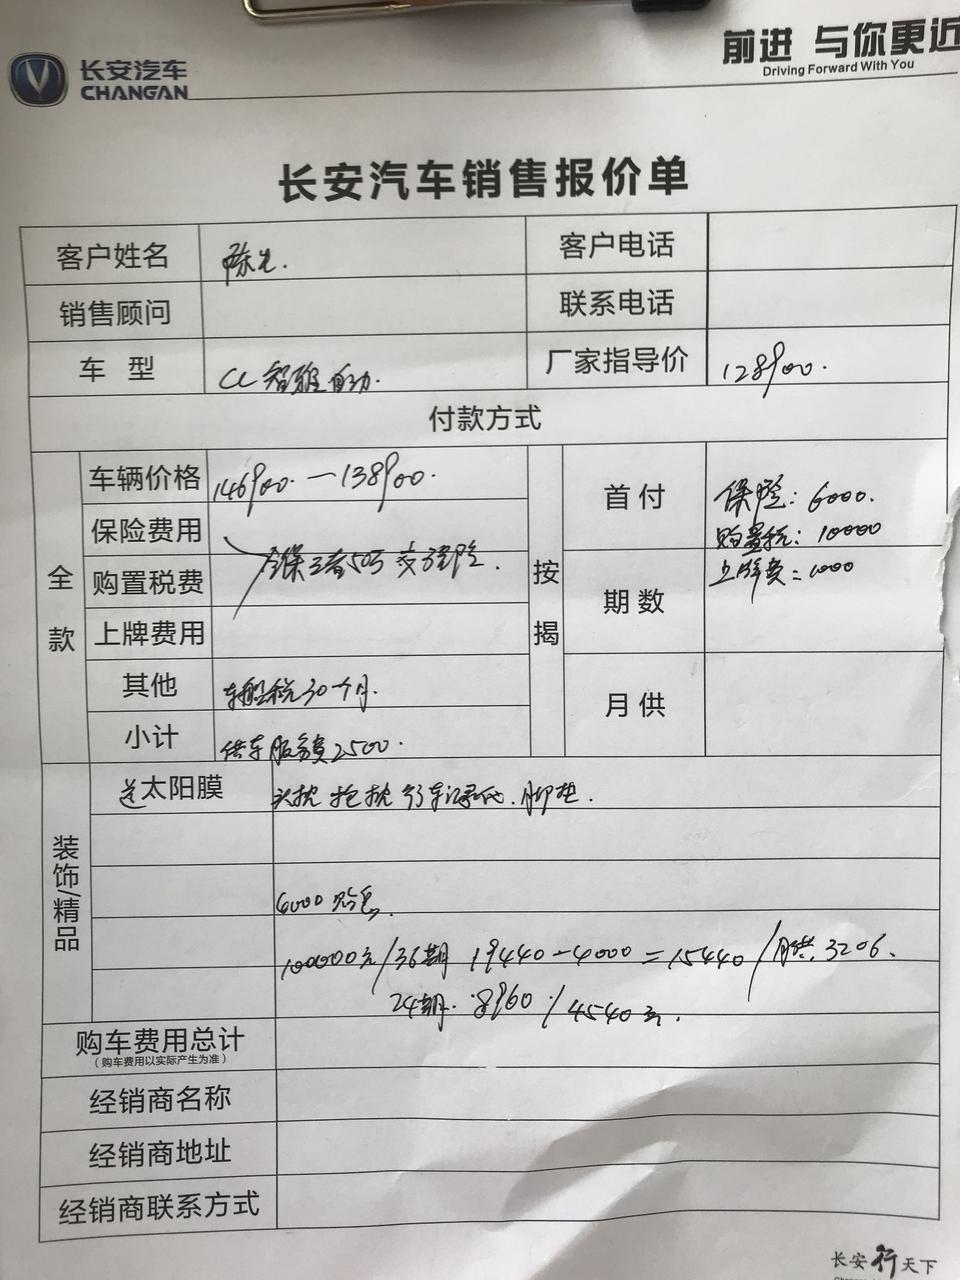 前进 与你更近
Driving Forward With You
长安汽车
CHANGAN
长安汽车销售报价单
客户姓名 陈生. 客户电话
销售顾问 联系电话
车 型 自动. 厂家指导价 128900.
付款方式
全款
车辆价格 146900. — 138900.
保险费用
全保三者50万 交强险.
购置税费
上牌费用
其他 车船税30一个月.
小计 供车服务费2500.
按揭
首付 保险: 6000.
购置税: 10000
上牌费: 1000
期数
月供
装饰/精品
送太阳膜 头枕 抱枕 行车记录仪. 脚垫.
6000
100000元/36期 19440-4000=15440/月供. 3206.
24期. 8960 / 4540元.
购车费用总计
(购车费用以实际产生为准)
经销商名称
经销商地址
经销商联系方式
长安行天下